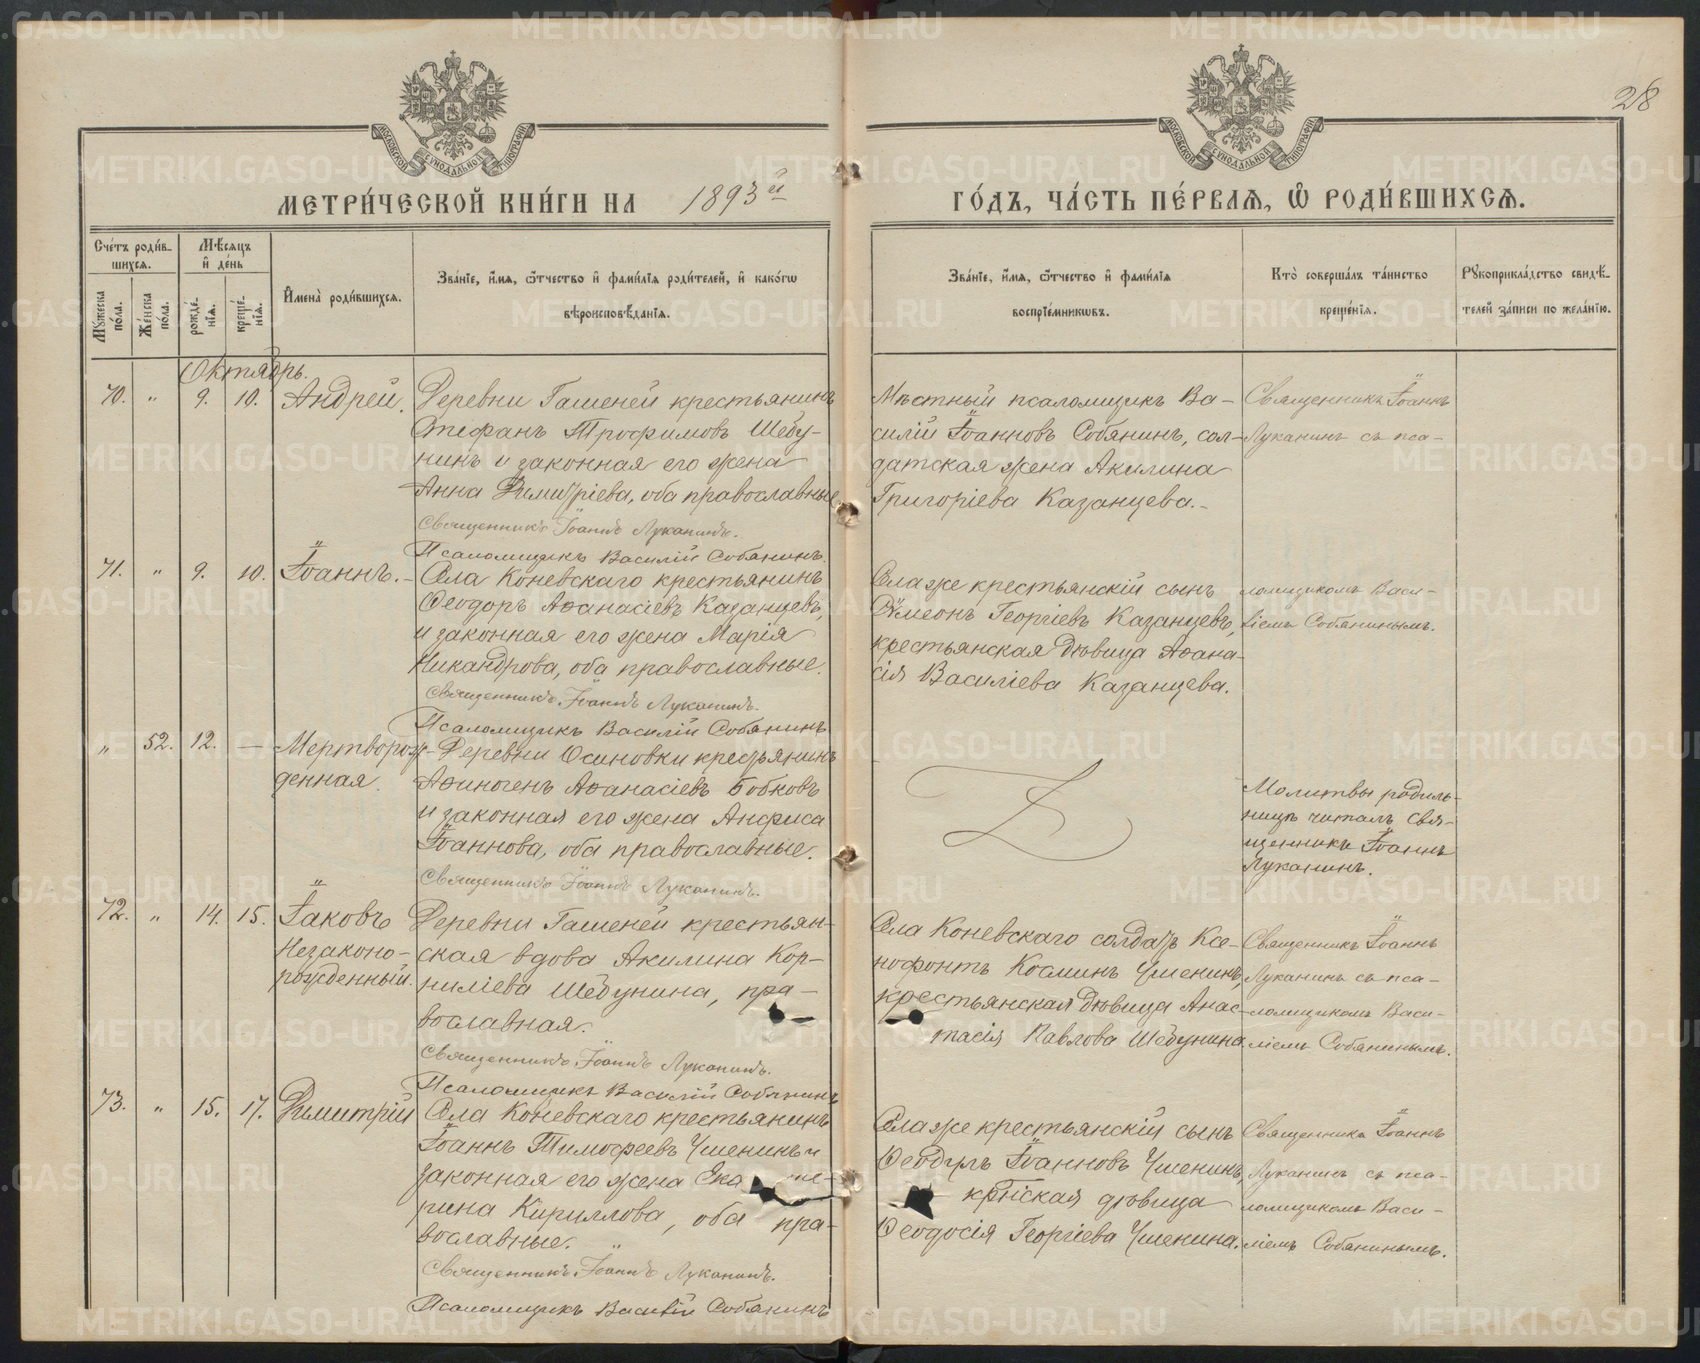 28
МЕТРИ́ЧЕСКОЙ КНИ́ГИ НА 1893й
ГО́ДЪ, ЧА́СТЬ ПЕ́РВАѦ, Ѽ РОДИ́ВШИХСѦ.
Сче́тъ роди́в-
шихся.
Мѣ́сяцъ
и́ де́нь
Му́жеска
по́ла.
Же́нска
по́ла.
рожде́-
нїя.
креще́-
нїя.
И҆мена̀ роди́вшихся.
Зва́нїе, и҆́мя, ѻ҆́тчество и҆ фами́лїя роди́телей, и҆ како́гѡ
вѣроисповѣ́данїя.
Зва́нїе, и҆́мя, ѻ҆́тчество и҆ фами́лїя
воспрїе́мникѡвъ.
Кто̀ соверша́лъ та́инство
креще́нїя.
Рꙋкоприкла́дство свидѣ́-
телей за́писи по жела́нїю.
Октябрь.
70. " 9. 10. Андрей.
Деревни Гашеней крестьянинъ
Стефанъ Трофимовъ Шебу-
нинъ и законная его жена
Анна Димитріева, оба православные
Священникъ Іоаннъ Луканинъ.
Псаломщикъ Василій Собянинъ.
Мѣстный псаломщикъ Ва-
силій Іоанновъ Собянинъ, сол-
датская жена Акилина
Григоріева Казанцева.-
Священникъ Іоаннъ
Луканинъ съ пса-
71. " 9. 10. Іоаннъ.-
Села Коневскаго крестьянинъ
Ѳеодоръ Аѳанасіевъ Казанцевъ,
и законная его жена Марія
Никандрова, оба православные.
Священникъ Іоаннъ Луканинъ.
Псаломщикъ Василій Собянинъ
Села же крестьянскій сынъ
Сѵмеонъ Георгіевъ Казанцевъ,
крестьянская дѣвица Аѳана-
сія Василіева Казанцева.
ломщикомъ Васи-
ліемъ Собянинымъ.
" 52. 12. — Мертворож-
денная.
Деревни Осиновки крестьянинъ
Аѳиногенъ Аѳанасіевъ Бобковъ
и законная его жена Анфиса
Іоаннова, оба православные.
Священникъ Іоаннъ Луканинъ.
Молитвы родиль-
ницѣ читалъ свя-
щенникъ Іоаннъ
Луканинъ.
72. " 14. 15. Іаковъ
Незаконо-
рожденный.
Деревни Гашеней крестьян-
ская вдова Акилина Кор-
ниліева Шебунина, пра-
вославная.
Священникъ Іоаннъ Луканинъ.
Псаломщикъ Василій Собянинъ
Села Коневскаго солдатъ Ксе-
нофонтъ Косминъ Ушенинъ,
крестьянская дѣвица Анас-
тасія Павлова Шебунина.
Священникъ Іоаннъ
Луканинъ съ пса-
ломщикомъ Васи-
ліемъ Собянинымъ.
73. " 15. 17. Димитрій
Села Коневскаго крестьянинъ
Іоаннъ Тимофеевъ Ушенинъ и
законная его жена Ека те-
рина Кириллова, оба пра-
вославные.
Священникъ Іоаннъ Луканинъ.
Псаломщикъ Василій Собянинъ
Села же крестьянскій сынъ
Ѳеодулъ Іоанновъ Ушенинъ,
крнская дѣвица
Ѳеодосія Георгіева Ушенина.
Священникъ Іоаннъ
Луканинъ съ пса-
ломщикомъ Васи-
ліемъ Собянинымъ.